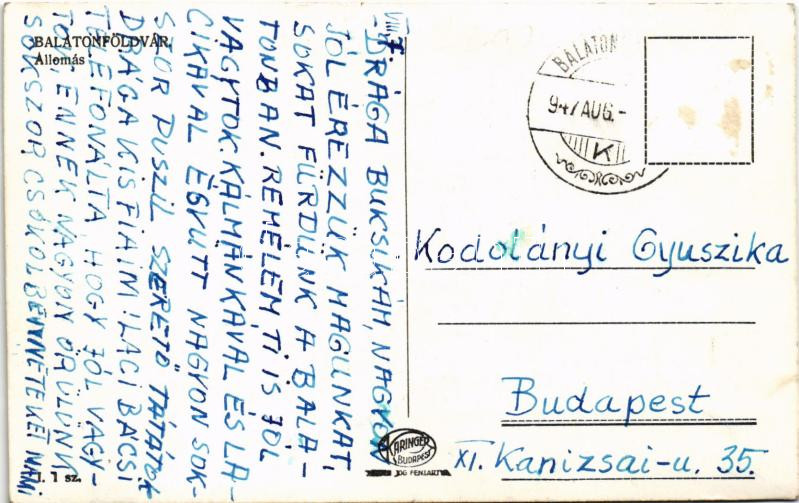 BALATONFÖLDVÁR.
Állomás
VIII/7
-DRÁGA BUKSIKÁM, NAGYON
JÓL ÉREZZÜK MAGUNKAT,
SOKAT FÜRDÜNK A BALA-
TONBAN. REMÉLEM TI IS JÓL
VAGYTOK KÁLMÁNKÁVAL ÉS LA-
CIKÁVAL EGYÜTT NAGYON SOK-
SZOR PUSZIL SZERETŐ TATÁTOK
DRÁGA KISFIAIM! LACI BÁCSI
TELEFONÁLTA, HOGY JÓL VAGY-
TOK, ENNEK NAGYON ÖRÜLÜNK
SOKSZOR CSÓKOL BENNETEKET MAMI
1. 1 sz.
BALATON
947 AUG.-
K
Kodolányi Gyuszika
Budapest
XI. Kanizsai-u. 35.
KARINGER
BUDAPEST
JOG FENTARTVA